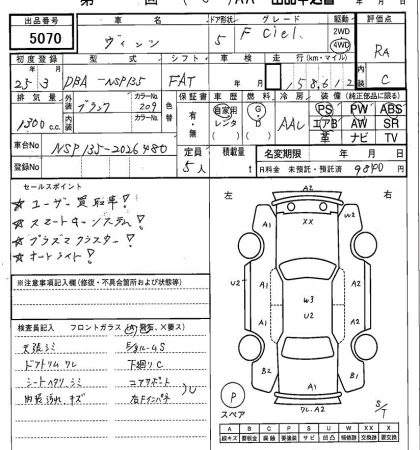 出品番号 車名 ドア形状 グレード 駆動 評価点
5070 ヴィッツ 5 F Ciel. 2WD 4WD RA
初度登録 型式 シフト 車検 走行(km・マイル) 内装
25年3月 DBA-NSP135 FAT 年 月 158,612 C
排気量 外装 色 カラーNo. 色替 保証書 車歴 燃料 冷房 装備(純正部品に限る)
1300c.c. ブラック 209 有・無 自家用 レンタ G・D AAC PS PW ABS
内装 カラーNo. エアB AW SR
革 ナビ TV
車台No. NSP135-2026480 定員 5人 積載量 t 名変期限 年 月 日
R料金 未預託・預託済 9800
セールスポイント
☆ユーザー買取車!
☆スマートキーシステム!
☆プラズマクラスター!
☆オートライト!
※注意事項記入欄(修復・不具合箇所および状態等)
左 右
A2
XX
A1 W2
A1 A1
U2 W3 U2
A2 A1
B2 B1
A1
P
スペア
リレ.A2
S/T
検査員記入 フロントガラス(A 飛石、X要ス)
天張シミ
ドアトリムワレ 下廻りC
シートヘタリ.シミ コアサポート
内装汚れ.キズ 右Fインパネ
A B C P S U W X XX
線キズ 要板金 腐蝕 要塗装 サビ 凹凸 補修跡 要交換 交換跡